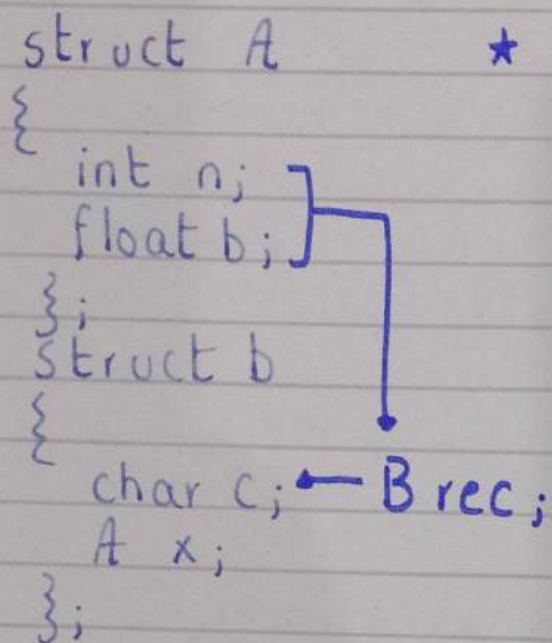 struct A ★
{
int n;
float b;
};
struct b
{
char c; B rec;
A x;
};